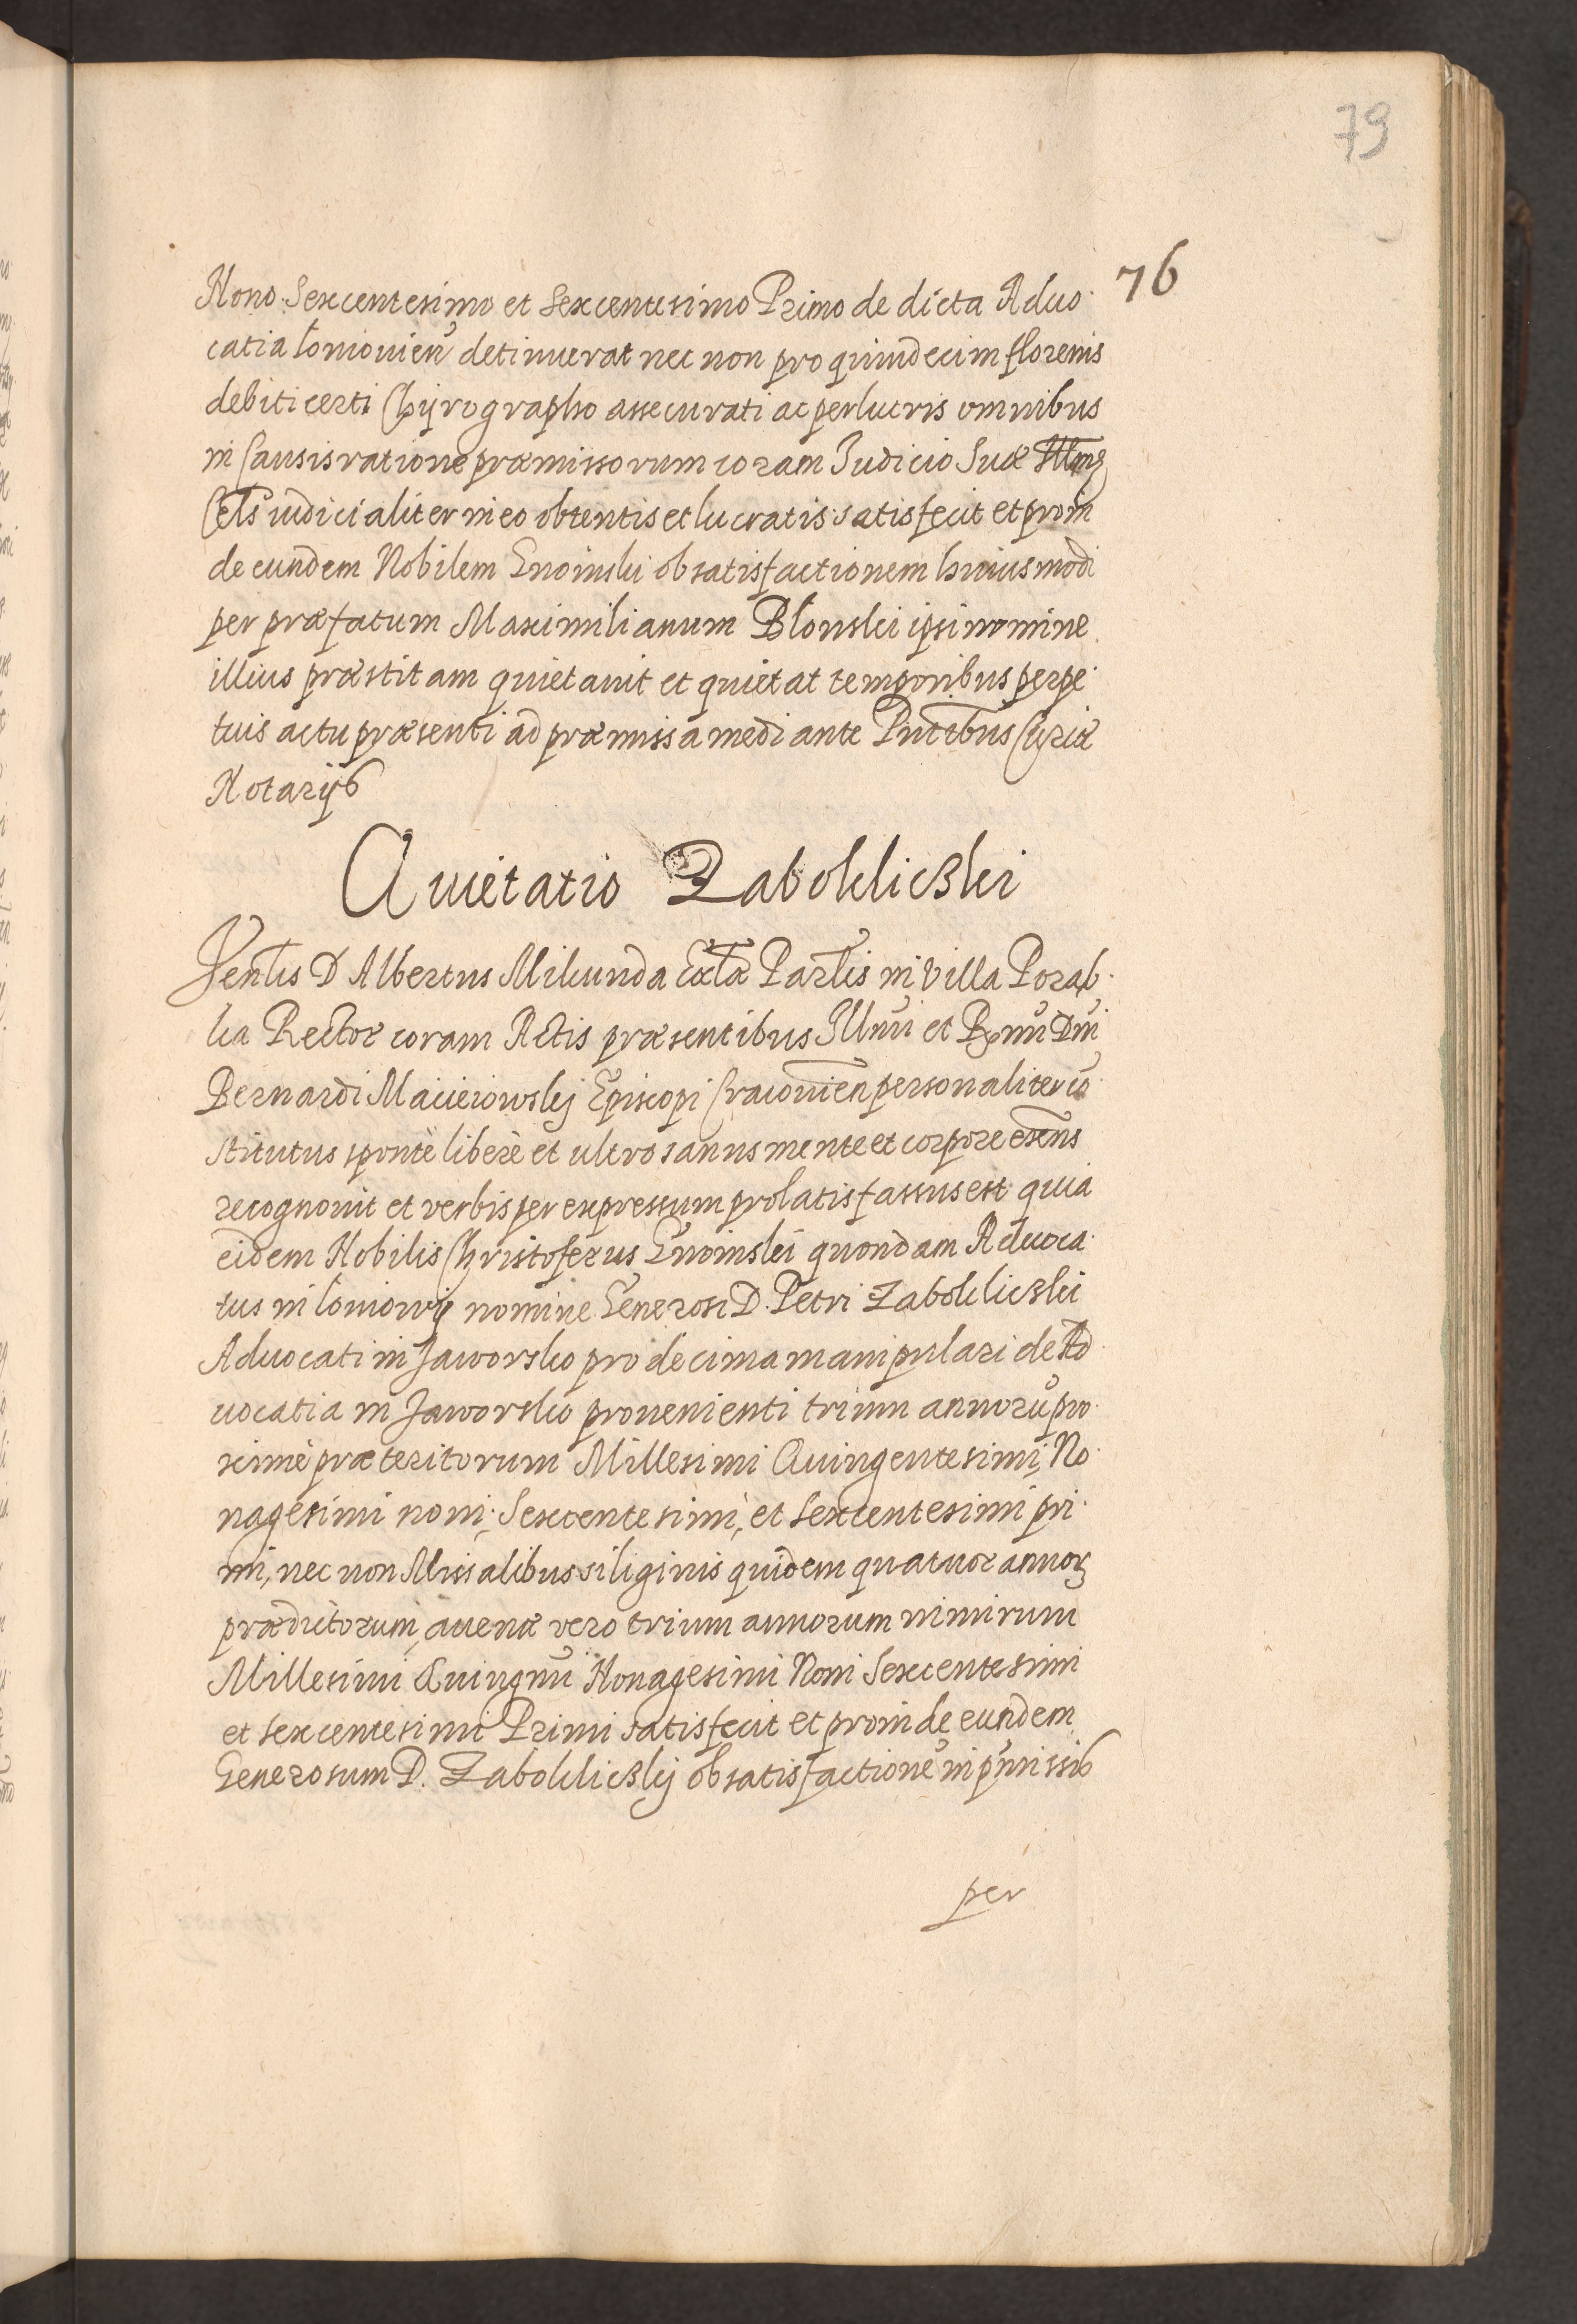 79
76
Nono Sexcentesimo et Sexcentesimo Primo de dicta Aduo
catia Łoniouien̄ detinuerat nec non pro quindecim florenis
debiti certi Chyrographo assecurati ac per lucris omnibus
in Causis ratione præmissorum coram Iudicio Suæ Illmę
Cels̄ iudicialiter in eo obtentis et lucratis satisfecit et proin
de eundem Nobilem Gnoinski ob satisfactionem huiusmodi
per præfatum Maximilianum Błonski ipsi nomine
illius præstitam quietauit et quietat temporibus perpe
tuis actu præsenti ad præmissa mediante Pntibus Curiæ
Notarijs
Quietatio Zabokliczki
Venlis D Albertus Mikunda Eccla Parlis in Villa Porab
ka Rector coram Actis præsentibus Illmi et Rxmi Dni
Bernardi Macieiowskij Episcopi Cracouien personaliter co
stitutus sponte libere et ultro sanus mente et corpore existens
recognouit et verbis per expressum prolatis fassus est quia
eidem Nobilis Christoferus Gnoinski quondam Aduoca
tus in Łoniowij nomine Generosi D. Petri Zabokliczki
Aduocati in Jaworsko pro decima manipulari de Ad
uocatia in Jaworsko prouenienti trium annorū pro
xime præteritorum Millesimi Quingentesimi, No
nagesimi noni, Sexcentesimi, et Sexcentesimi pri
mi, nec non Missalibus siliginis quidem quatuor annorꝫ
prædictorum, auenæ vero trium annorum nimirum
Millesimi Quingmi Nonagesimi Noni Sexcentesimi
et Sexcentesimi Primi satisfecit et proinde eundem
Generosum D. Zabokliczkij ob satisfactionē in pmissis
per